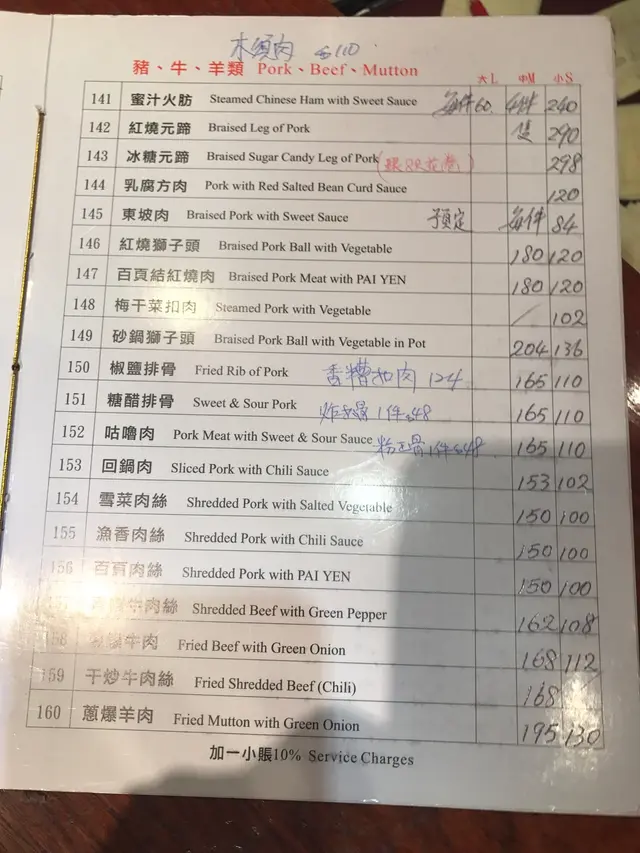 木須肉 $110
豬、牛、羊類 Pork、Beef、Mutton 大L 中M 小S
141 蜜汁火肪 Steamed Chinese Ham with Sweet Sauce 每件60 4件 240
142 紅燒元蹄 Braised Leg of Pork 隻 290
143 冰糖元蹄 Braised Sugar Candy Leg of Pork 298
144 乳腐方肉 Pork with Red Salted Bean Curd Sauce 120
145 東坡肉 Braised Pork with Sweet Sauce 預定 每件 84
146 紅燒獅子頭 Braised Pork Ball with Vegetable 180 120
147 百頁結紅燒肉 Braised Pork Meat with PAI YEN 180 120
148 梅干菜扣肉 Steamed Pork with Vegetable / 102
149 砂鍋獅子頭 Braised Pork Ball with Vegetable in Pot 204 136
150 椒鹽排骨 Fried Rib of Pork 香糟扣肉 124 165 110
151 糖醋排骨 Sweet & Sour Pork 1件$48 165 110
152 咕嚕肉 Pork Meat with Sweet & Sour Sauce 1件$48 165 110
153 回鍋肉 Sliced Pork with Chili Sauce 153 102
154 雪菜肉絲 Shredded Pork with Salted Vegetable 150 100
155 漁香肉絲 Shredded Pork with Chili Sauce 150 100
156 百頁肉絲 Shredded Pork with PAI YEN 150 100
牛肉絲 Shredded Beef with Green Pepper 162 108
158 牛肉 Fried Beef with Green Onion 168 112
159 干炒牛肉絲 Fried Shredded Beef (Chili) 168 /
160 蔥爆羊肉 Fried Mutton with Green Onion 195 130
加一小賬10% Service Charges